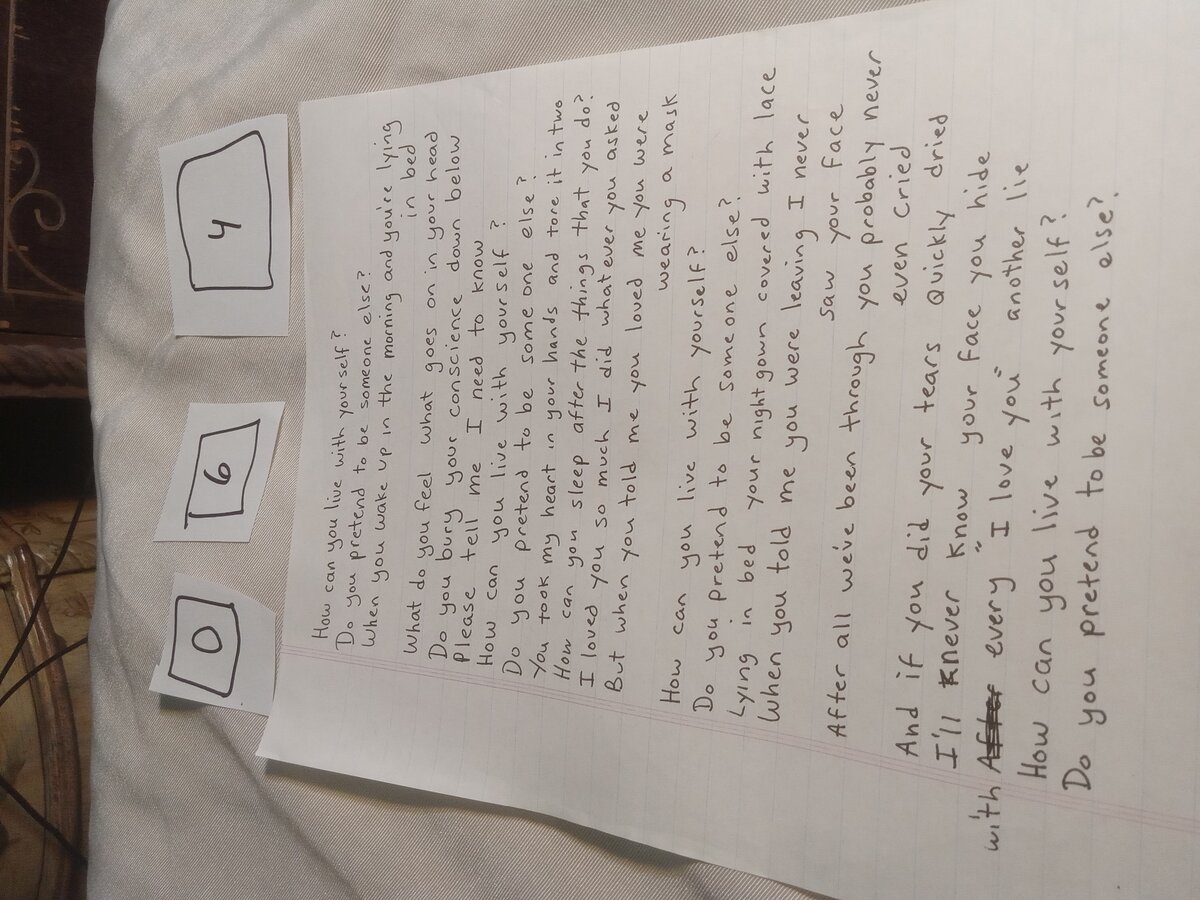 0
6
4
How can you live with yourself?
Do you pretend to be someone else?
When you wake up in the morning and you're lying
in bed
What do you feel what goes on in your head
Do you bury your conscience down below
Please tell me I need to know
How can you live with yourself?
Do you pretend to be some one else?
You took my heart in your hands and tore it in two
How can you sleep after the things that you do?
I loved you so much I did what ever you asked
But when you told me you loved me you were
wearing a mask
How can you live with yourself?
Do you pretend to be some one else?
Lying in bed your night gown covered with lace
When you told me you were leaving I never
saw your face
After all we've been through you probably never
even cried
And if you did your tears quickly dried
I'll never know your face you hide
with After every "I love you" another lie
How can you live with yourself?
Do you pretend to be someone else?